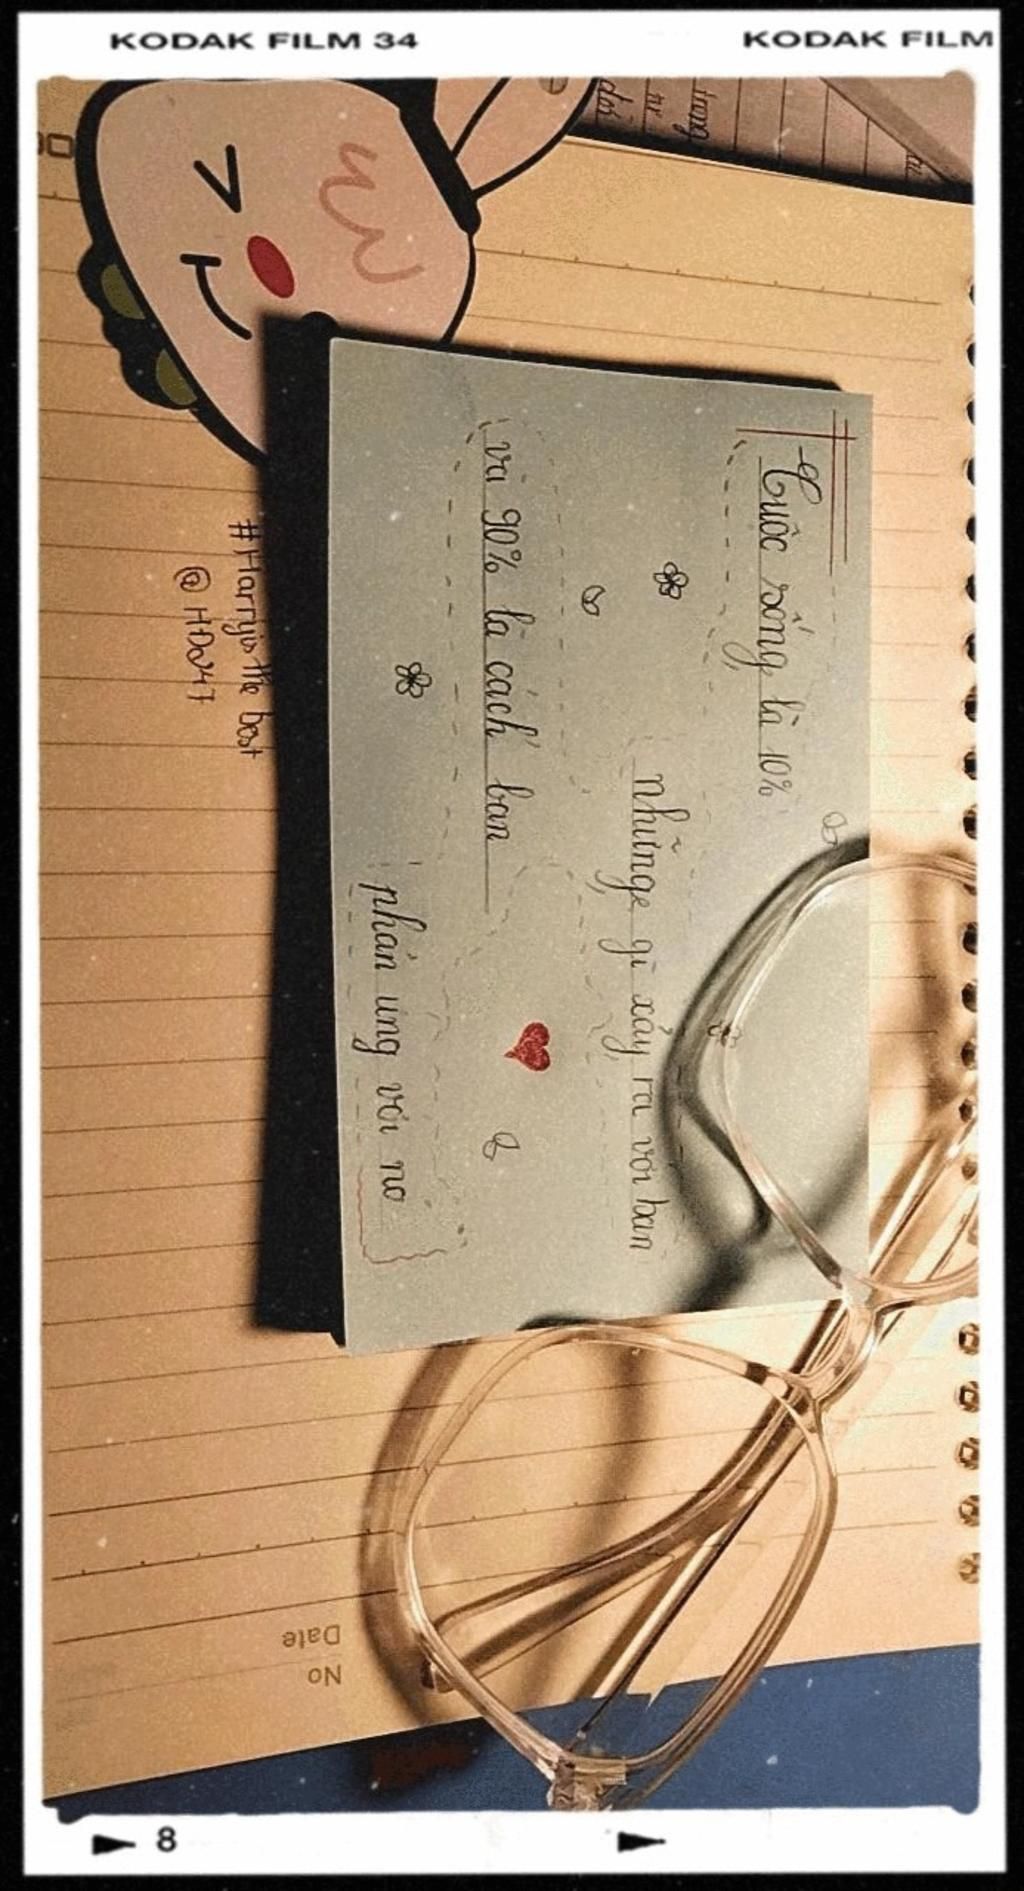 KODAK FILM 34
KODAK FILM
Cuộc sống là 10%
nhữnge gì xảy ra với bạn
và 90% là cách bạn
phản ứng với nó
#Harryis the best
@HDa47
No
Date